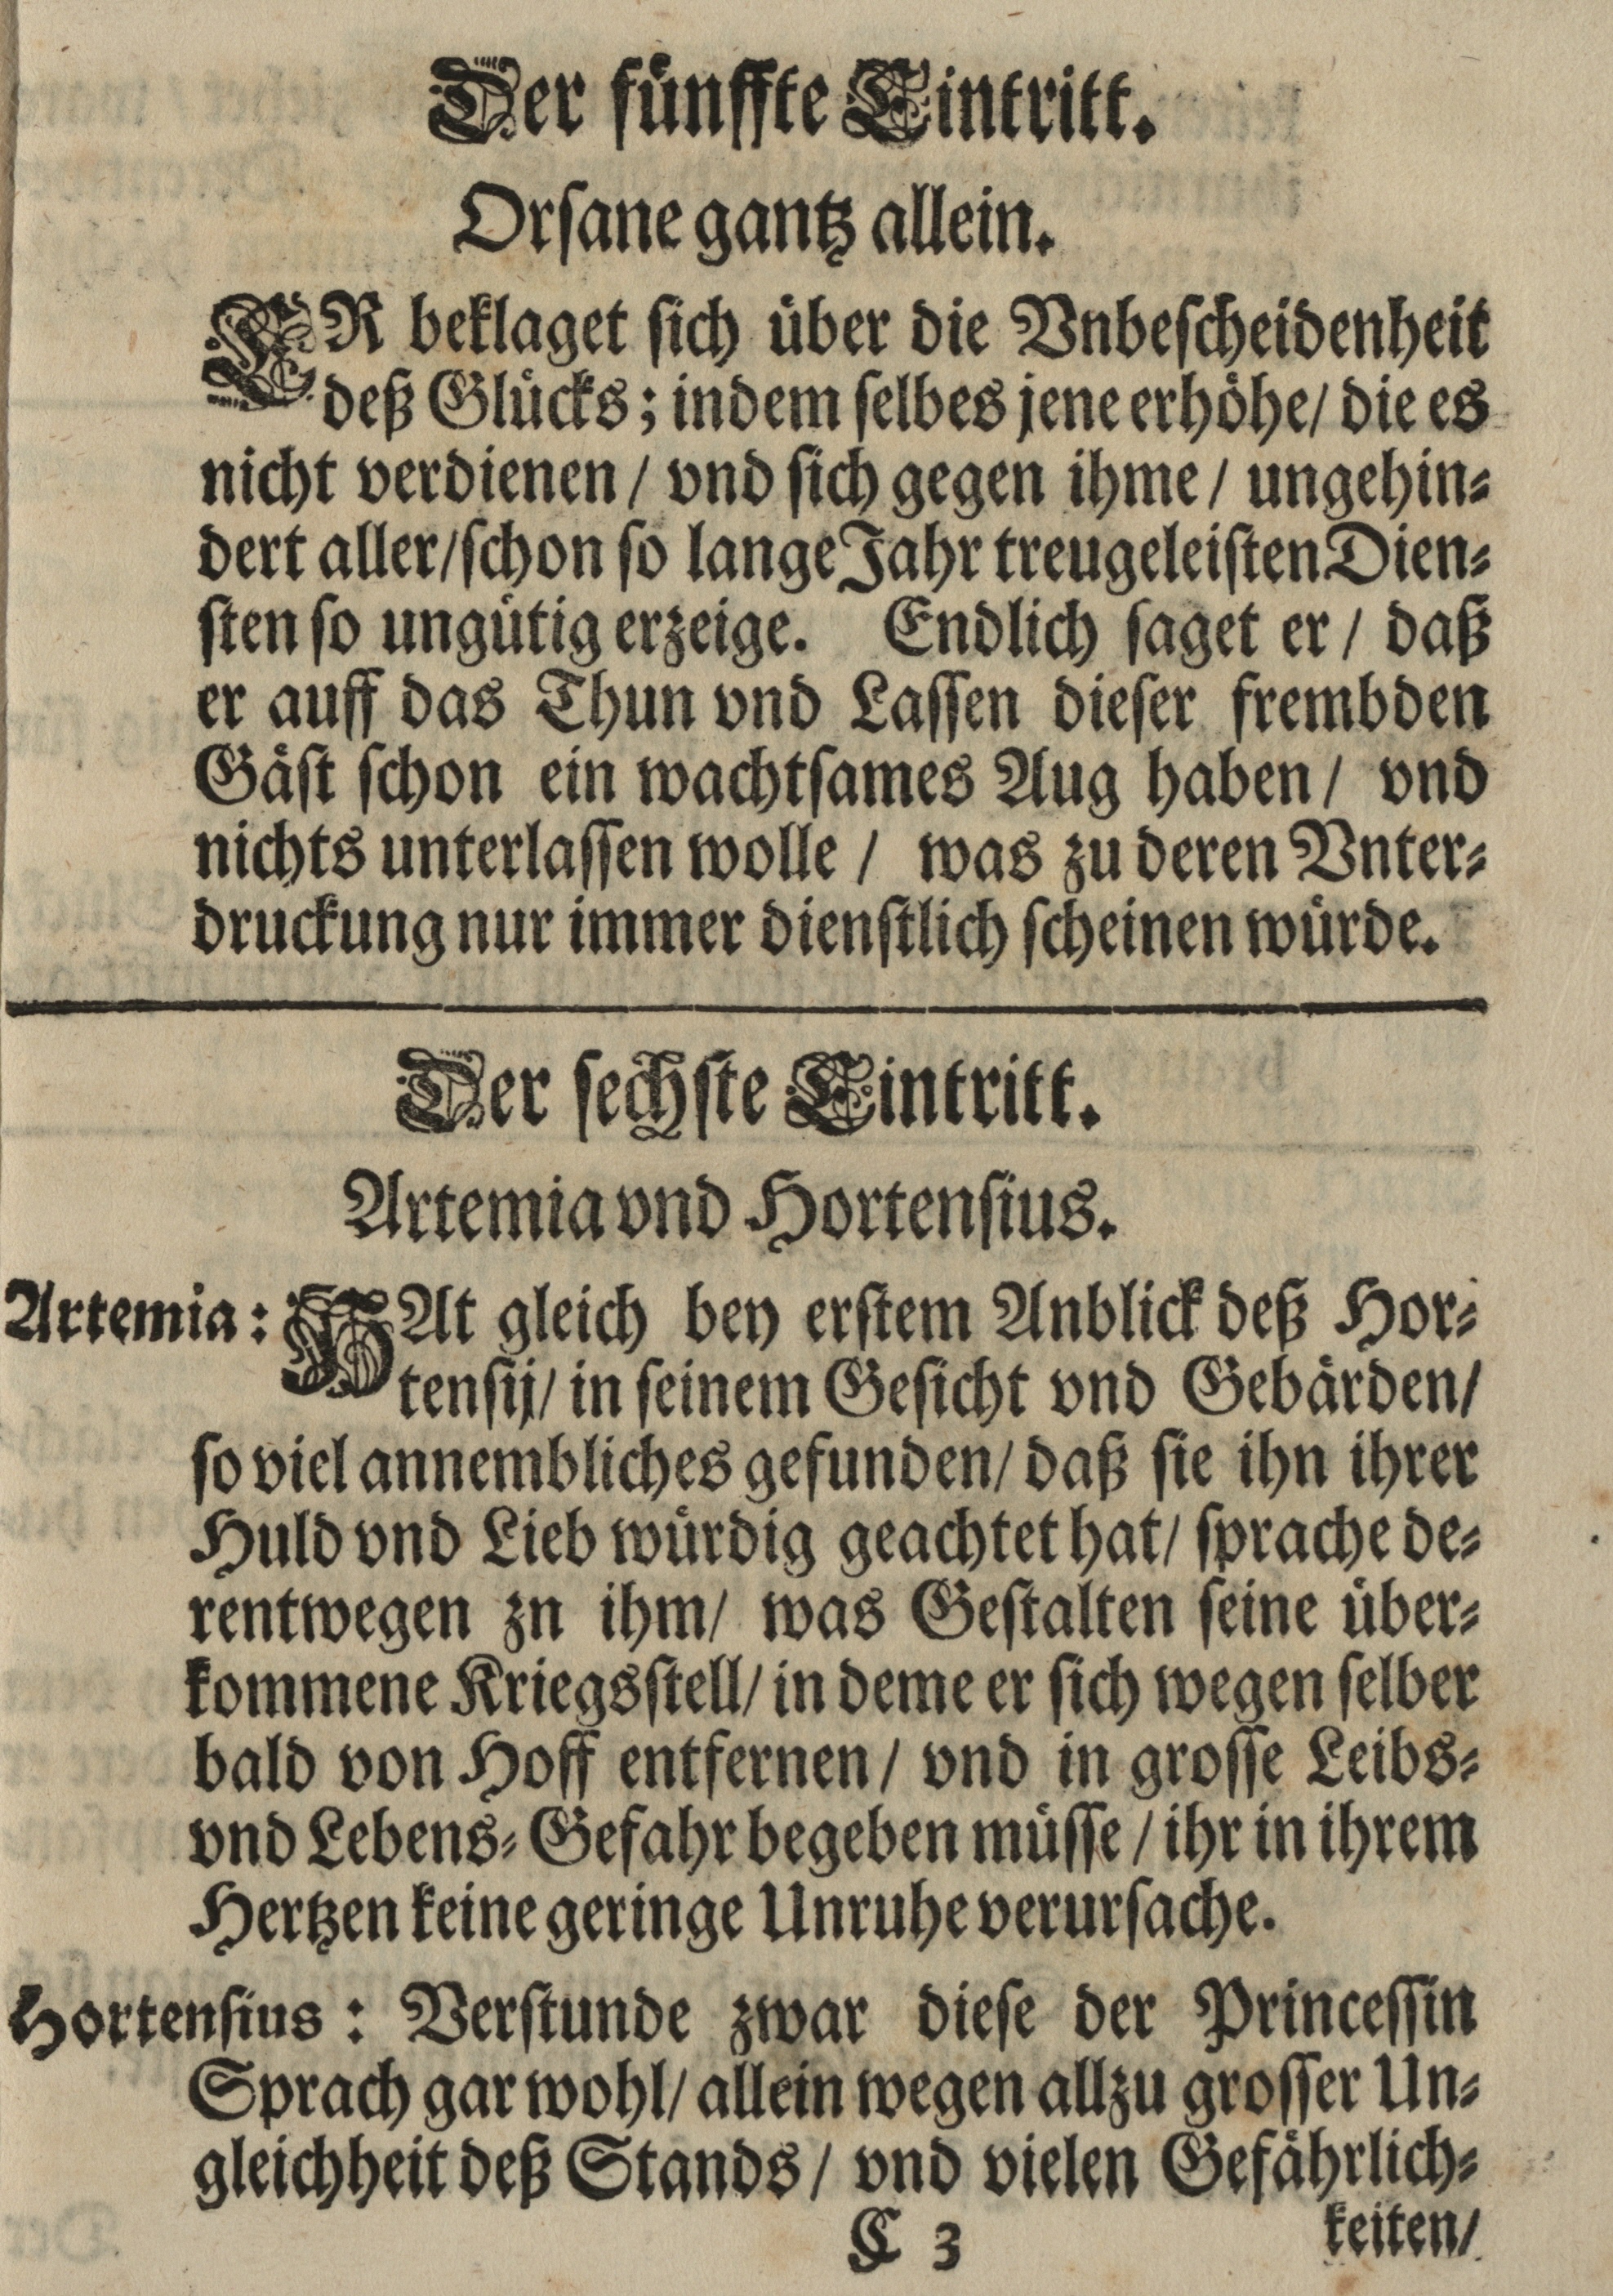 Der fünffte Eintritt.
Orsane gantz allein.
ER beklaget sich über die Vnbescheidenheit
deß Glücks; indem selbes jene erhöhe/ die es
nicht verdienen / vnd sich gegen ihme / ungehin-
dert aller/schon so lange Jahr treugeleisten Dien-
sten so ungütig erzeige. Endlich saget er / daß
er auff das Thun vnd Lassen dieser frembden
Gäst schon ein wachtsames Aug haben / vnd
nichts unterlassen wolle / was zu deren Vnter-
druckung nur immer dienstlich scheinen würde.
Der sechste Eintritt.
Artemia vnd Hortensius.
Artemia: HAt gleich bey erstem Anblick deß Hor-
tensij/ in seinem Gesicht vnd Gebärden/
so viel annembliches gefunden/ daß sie ihn ihrer
Huld vnd Lieb würdig geachtet hat/ sprache de-
rentwegen zn ihm/ was Gestalten seine über-
kommene Kriegsstell/ in deme er sich wegen selber
bald von Hoff entfernen / vnd in grosse Leibs-
vnd Lebens-Gefahr begeben müsse / ihr in ihrem
Hertzen keine geringe Unruhe verursache.
Hortensius: Verstunde zwar diese der Princessin
Sprach gar wohl/ allein wegen allzu grosser Un-
gleichheit deß Stands / vnd vielen Gefährlich-
C 3 keiten/